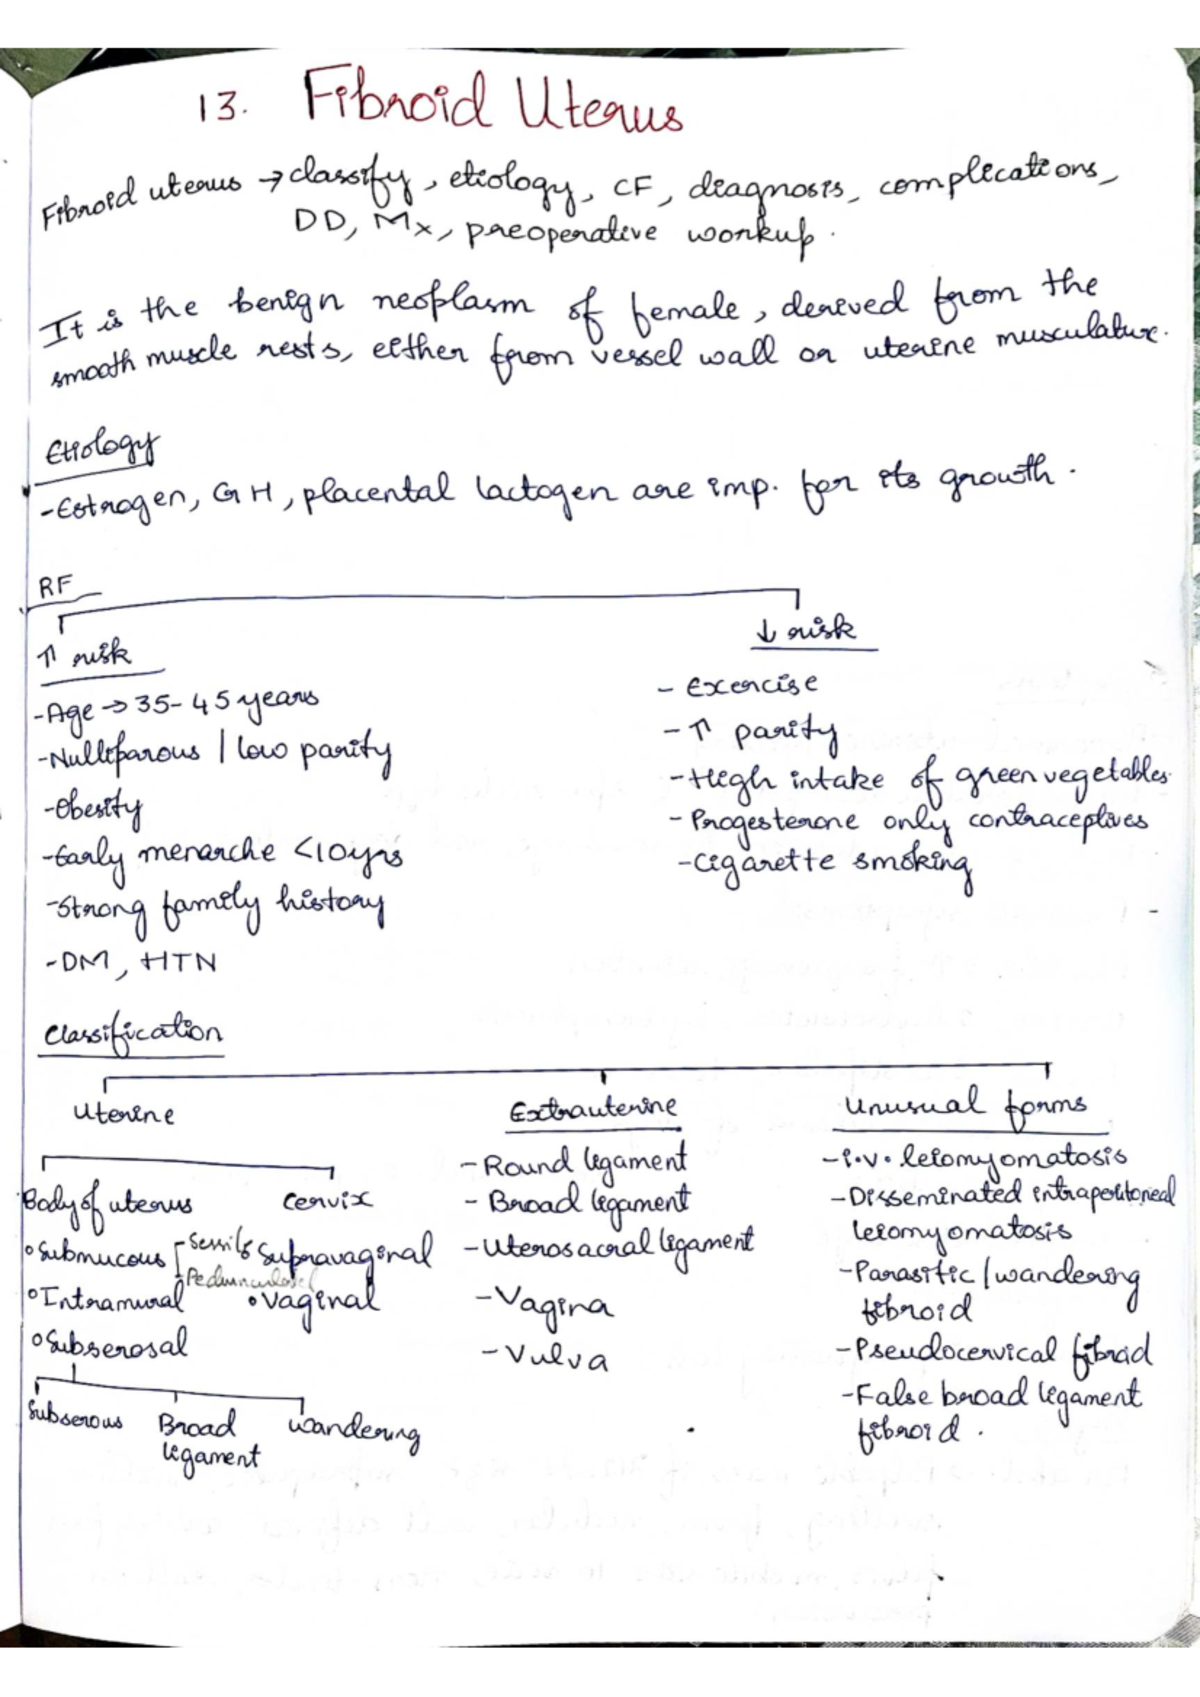 13. Fibroid Uterus
Fibroid uterus → classify, etiology, CF, diagnosis, complications,
DD, Mx, preoperative workup.
It is the benign neoplasm of female, derived from the
smooth muscle rests, either from vessel wall or uterine musculature.
Etiology
-Estrogen, GH, placental lactogen are imp. for its growth.
RF
↑ risk
-Age → 35-45 years
-Nulliparous / low parity
-Obesity
-Early menarche <10yrs
-Strong family history
-DM, HTN
↓ risk
- Exercise
- ↑ parity
-High intake of green vegetables.
- Progesterone only contraceptives
-Cigarette smoking
Classification
Uterine
Body of uterus
°Submucous
-Sessile
-Pedunculated
°Intramural
°Subserosal
Subserous
Broad
ligament
Wandering
Cervix
°Supravaginal
°Vaginal
Extrauterine
-Round ligament
- Broad ligament
-Uterosacral ligament
-Vagina
-Vulva
Unusual forms
-i.v. leiomyomatosis
-Disseminated intraperitoneal
leiomyomatosis
-Parasitic / wandering
fibroid
-Pseudocervical fibroid
-False broad ligament
fibroid.